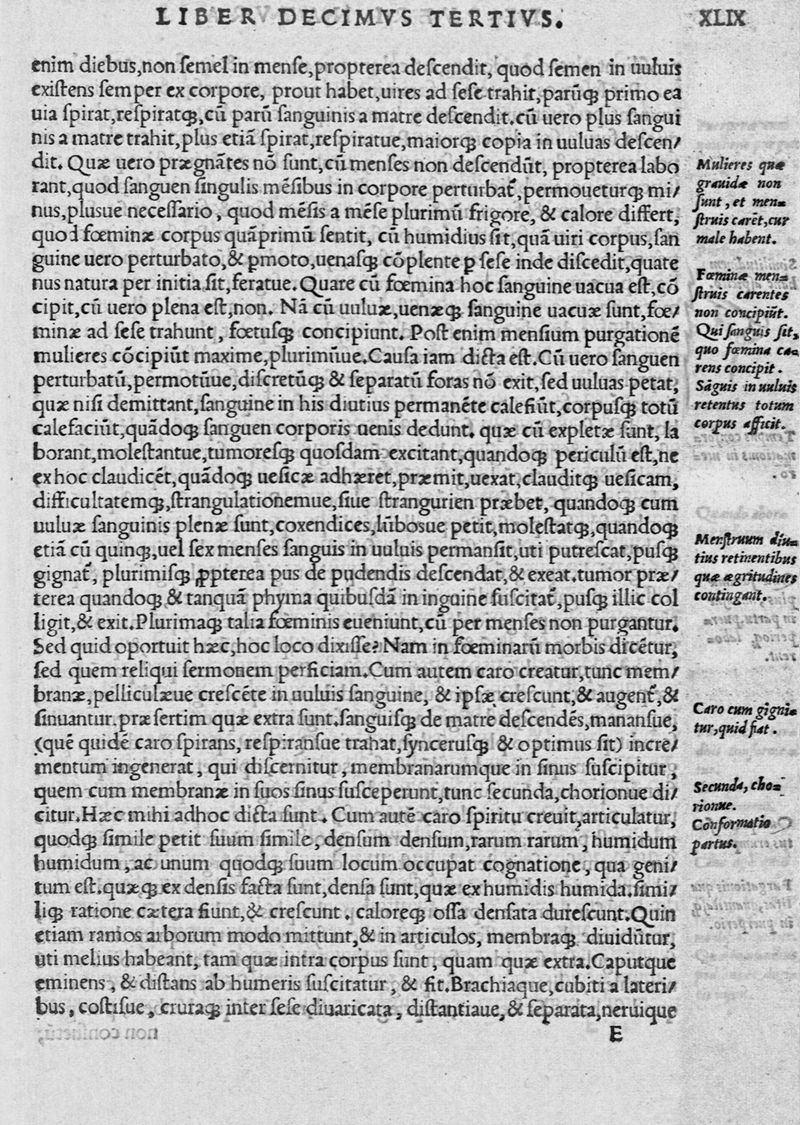 LIBER DECIMVS TERTIVS.
XLIX
enim diebus,non ſemel in menſe,propterea deſcendit, quod ſemen in uuluis
exiſtens ſemper ex corpore, prout habet,uires ad ſeſe trahit,parūqꝫ primo ea
uia ſpirat,reſpiratqꝫ,cū parū ſanguinis a matre deſcendit.cū uero plus ſangui
nis a matre trahit,plus etiā ſpirat,reſpiratue,maiorqꝫ copia in uuluas deſcen/
dit. Quæ uero prægnātes nō ſunt,cū menſes non deſcendūt, propterea labo
rant,quod ſanguen ſingulis mēſibus in corpore perturbat᷑,permoueturqꝫ mi/
nus,plusue neceſſario, quod mēſis a mēſe plurimū frigore, & calore differt,
quod fœminæ corpus quāprimū ſentit, cū humidius ſit,quā uiri corpus,ſan
guine uero perturbato,& ꝑmoto,uenaſqꝫ cōplente ꝑ ſeſe inde diſcedit,quate
nus natura per initia ſit,feratue.Quare cū fœmina hoc ſanguine uacua eſt,cō
cipit,cū uero plena eſt,non. Nā cū uuluæ,uenæqꝫ ſanguine uacuæ ſunt,fœ/
minæ ad ſeſe trahunt, fœtuſqꝫ concipiunt. Poſt enim menſium purgationē
mulieres cōcipiūt maxime,plurimūue.Cauſa iam dicta eſt.Cū uero ſanguen
perturbatū,permotūue,diſcretūqꝫ & ſeparatū foras nō exit,ſed uuluas petat,
quæ niſi demittant,ſanguine in his diutius permanēte calefiūt,corpuſqꝫ totū
calefaciūt,quādoqꝫ ſanguen corporis uenis dedunt. quæ cū expletæ ſunt, la
borant,moleſtantue,tumoreſqꝫ quoſdam excitant,quandoqꝫ periculū eſt,ne
ex hoc claudicēt,quādoqꝫ ueſicæ adhæret,præmit,uexat,clauditqꝫ ueſicam,
difficultatemqꝫ,ſtrangulationemue,ſiue ſtrangurien præbet, quandoqꝫ cum
uuluæ ſanguinis plenæ ſunt,coxendices,lūbosue petit,moleſtatqꝫ,quandoqꝫ
etiā cū quinqꝫ,uel ſex menſes ſanguis in uuluis permanſit,uti putreſcat,puſqꝫ
gignat᷑, plurimiſqꝫ ꝓpterea pus de pudendis deſcendat,& exeat.tumor præ/
terea quandoqꝫ & tanquā phyma quibuſdā in inguine ſuſcitat᷑,puſqꝫ illic col
ligit,& exit.Plurimaqꝫ talia fœminis eueniunt,cū per menſes non purgantur.
Sed quid oportuit hæc,hoc loco dixiſſe? Nam in fœminarū morbis dicētur,
ſed quem reliqui ſermonem perficiam.Cum autem caro creatur,tunc mem/
branæ,pelliculæue creſcēte in uuluis ſanguine, & ipſæ creſcunt,& augent᷑,&
ſinuantur.præſertim quæ extra ſunt.ſanguiſqꝫ de matre deſcendēs,mananſue,
(quē quidē caro ſpirans, reſpiranſue trahat,ſyncerufqꝫ & optimus ſit) incre/
mentum ingenerat, qui diſcernitur, membranarumque in ſinus ſuſcipitur,
quem cum membranæ in ſuos ſinus ſuſceperunt,tunc ſecunda,chorionue di/
citur.Hæc mihi adhoc dicta ſunt. Cum autē caro ſpiritu creuit,articulatur,
quodqꝫ ſimile petit ſuum ſimile, denſum denſum,rarum rarum, humidum
humidum, ac unum quodqꝫ ſuum locum occupat cognatione, qua geni/
tum eſt.quæqꝫ ex denſis facta ſunt,denſa ſunt,quæ ex humidis humida.ſimi/
liqꝫ ratione cætera fiunt,& creſcunt. caloreqꝫ oſſa denſata dureſcunt.Quin
etiam ramos arborum modo mittunt,& in articulos, membraqꝫ diuidūtur,
uti melius habeant, tam quæ intra corpus ſunt, quam quæ extra.Caputque
eminens, & diſtans ab humeris ſuſcitatur, & fit.Brachiaque,cubiti a lateri/
bus, coſtiſue, cruraqꝫ inter ſeſe diuaricata, diſtantiaue,& ſeparata,neruique
E
Mulieres quæ
grauidæ non
ſunt, et men=
ſtruis carēt,cur
male habent.
Fœminæ men=
ſtruis carentes
non concipiūt.
Qui ſanguis ſit,
quo fœmina ca=
rens concipit.
Sāguis in uuluis
retentus totum
corpus afficit.
Menſtruum diu=
tius retinentibus
quæ ægritudines
contingant.
Caro cum gigni=
tur,quid fiat.
Secunda, cho=
rionue.
Conformatio
partus.